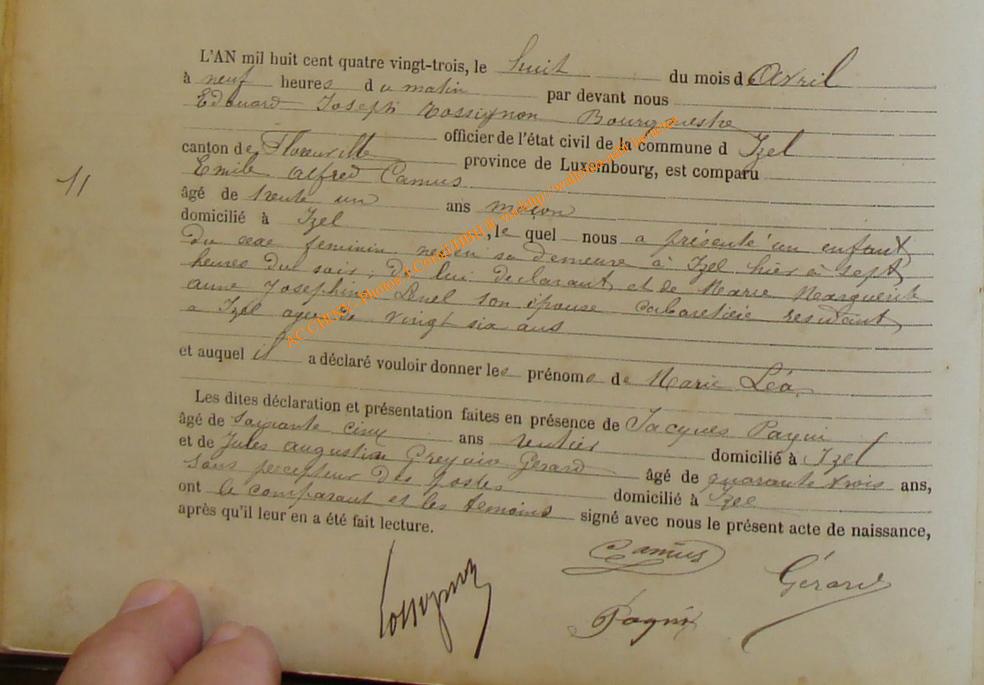 L'AN mil huit cent quatre vingt-trois, le huit du mois d Avril
à neuf heures du matin par devant nous
Edouard Joseph Rossignon Bourgmestre
officier de l'état civil de la commune d Izel
canton de Florenville province de Luxembourg, est comparu
Emile Alfred Camus
11
âgé de trente un ans maçon
domicilié à Izel , le quel nous a présenté un enfant
du sexe feminin, né en sa demeure à Izel hier à sept
heures du soir, de lui declarant et de Marie Marguerite
anne Josephine son épouse cabaretière residant
a Izel agée de vingt six ans
et auquel il a déclaré vouloir donner les prénoms de Marie Léa.
Les dites déclaration et présentation faites en présence de Jacques Pagni
âgé de soixante cinq ans rentier domicilié à Izel
et de Jules augustin Gerard âgé de quarante trois ans,
sous percepteur des postes domicilié à Izel
ont le comparant et les temoins signé avec nous le présent acte de naissance,
après qu'il leur en a été fait lecture.
Rossignon Camus Gérard
Pagni